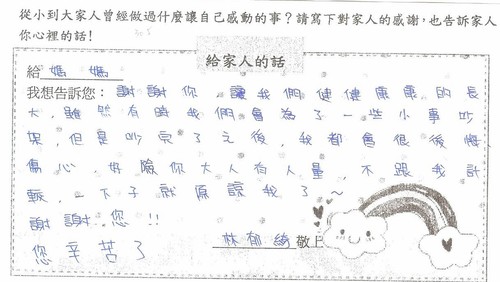 從小到大家人曾經做過什麼讓自己感動的事?請寫下對家人的感謝,也告訴家人
你心裡的話!
給家人的話
給 媽媽
我想告訴您:謝謝你,讓我們健健康康的長
大,雖然有時我們會為了一些小事吵
架,但是吵完了之後,我都會很後悔
傷心,好險你大人有大量,不跟我計
較,一下子就原諒我了~
謝謝您!!
您辛苦了
林郁綺 敬上